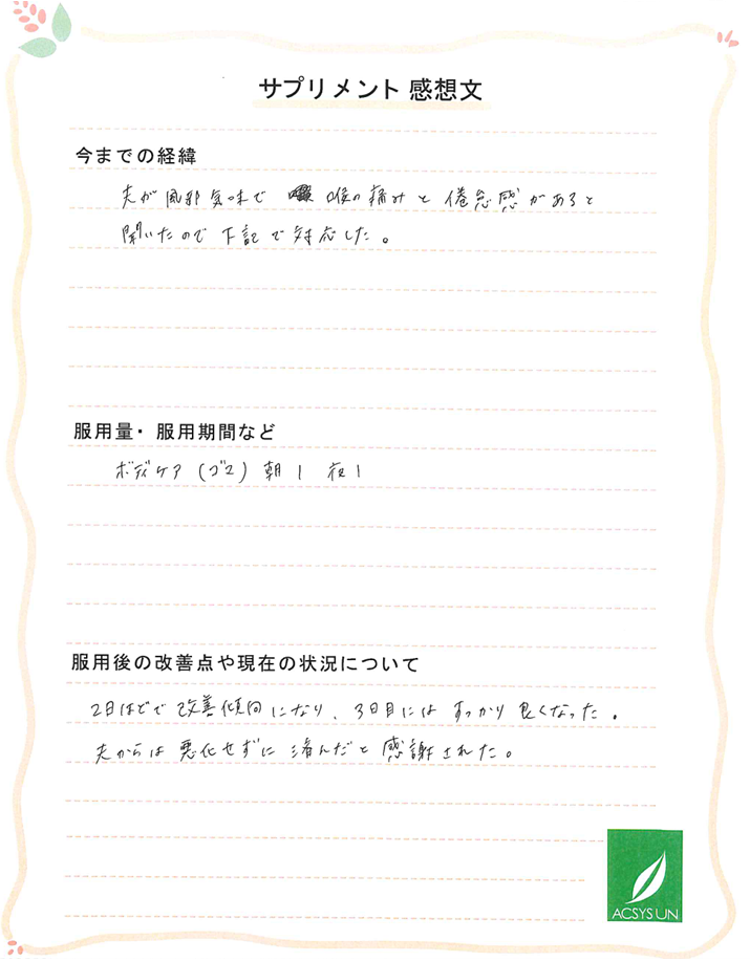 サプリメント 感想文
今までの経緯
夫が風邪気味で 喉の痛みと倦怠感があると
聞いたので下記で対応した。
服用量・服用期間など
ボディケア (ゴマ) 朝1 夜1
服用後の改善点や現在の状況について
2日ほどで改善傾向になり、3日目にはすっかり良くなった。
夫からは悪化せずに済んだと感謝された。
ACSYSUN